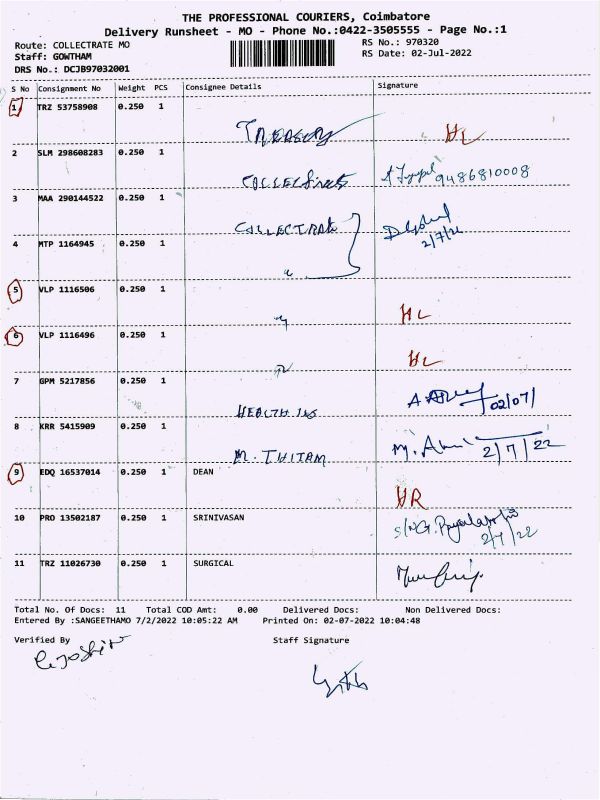 THE PROFESSIONAL COURIERS, Coimbatore
Delivery Runsheet - MO - Phone No.:0422-3505555 - Page No.:1
Route: COLLECTRATE MO RS No.: 970320
Staff: GOWTHAM RS Date: 02-Jul-2022
DRS No.: DCJB97032001
S No Consignment No Weight PCS Consignee Details Signature
1 TRZ 53758908 0.250 1
HL
2 SLM 298608283 0.250 1
9486810008
3 MAA 290144522 0.250 1
COLLECTRATE
2/7/22
4 MTP 1164945 0.250 1
"
5 VLP 1116506 0.250 1
" HL
6 VLP 1116496 0.250 1
" HL
7 GPM 5217856 0.250 1
HEALTH INS 02/07/
8 KRR 5415909 0.250 1
M. THITAM 2/7/22
9 EDQ 16537014 0.250 1 DEAN
HR
10 PRO 13502187 0.250 1 SRINIVASAN
2/7/22
11 TRZ 11026730 0.250 1 SURGICAL
Total No. Of Docs: 11 Total COD Amt: 0.00 Delivered Docs: Non Delivered Docs:
Entered By :SANGEETHAMO 7/2/2022 10:05:22 AM Printed On: 02-07-2022 10:04:48
Verified By Staff Signature